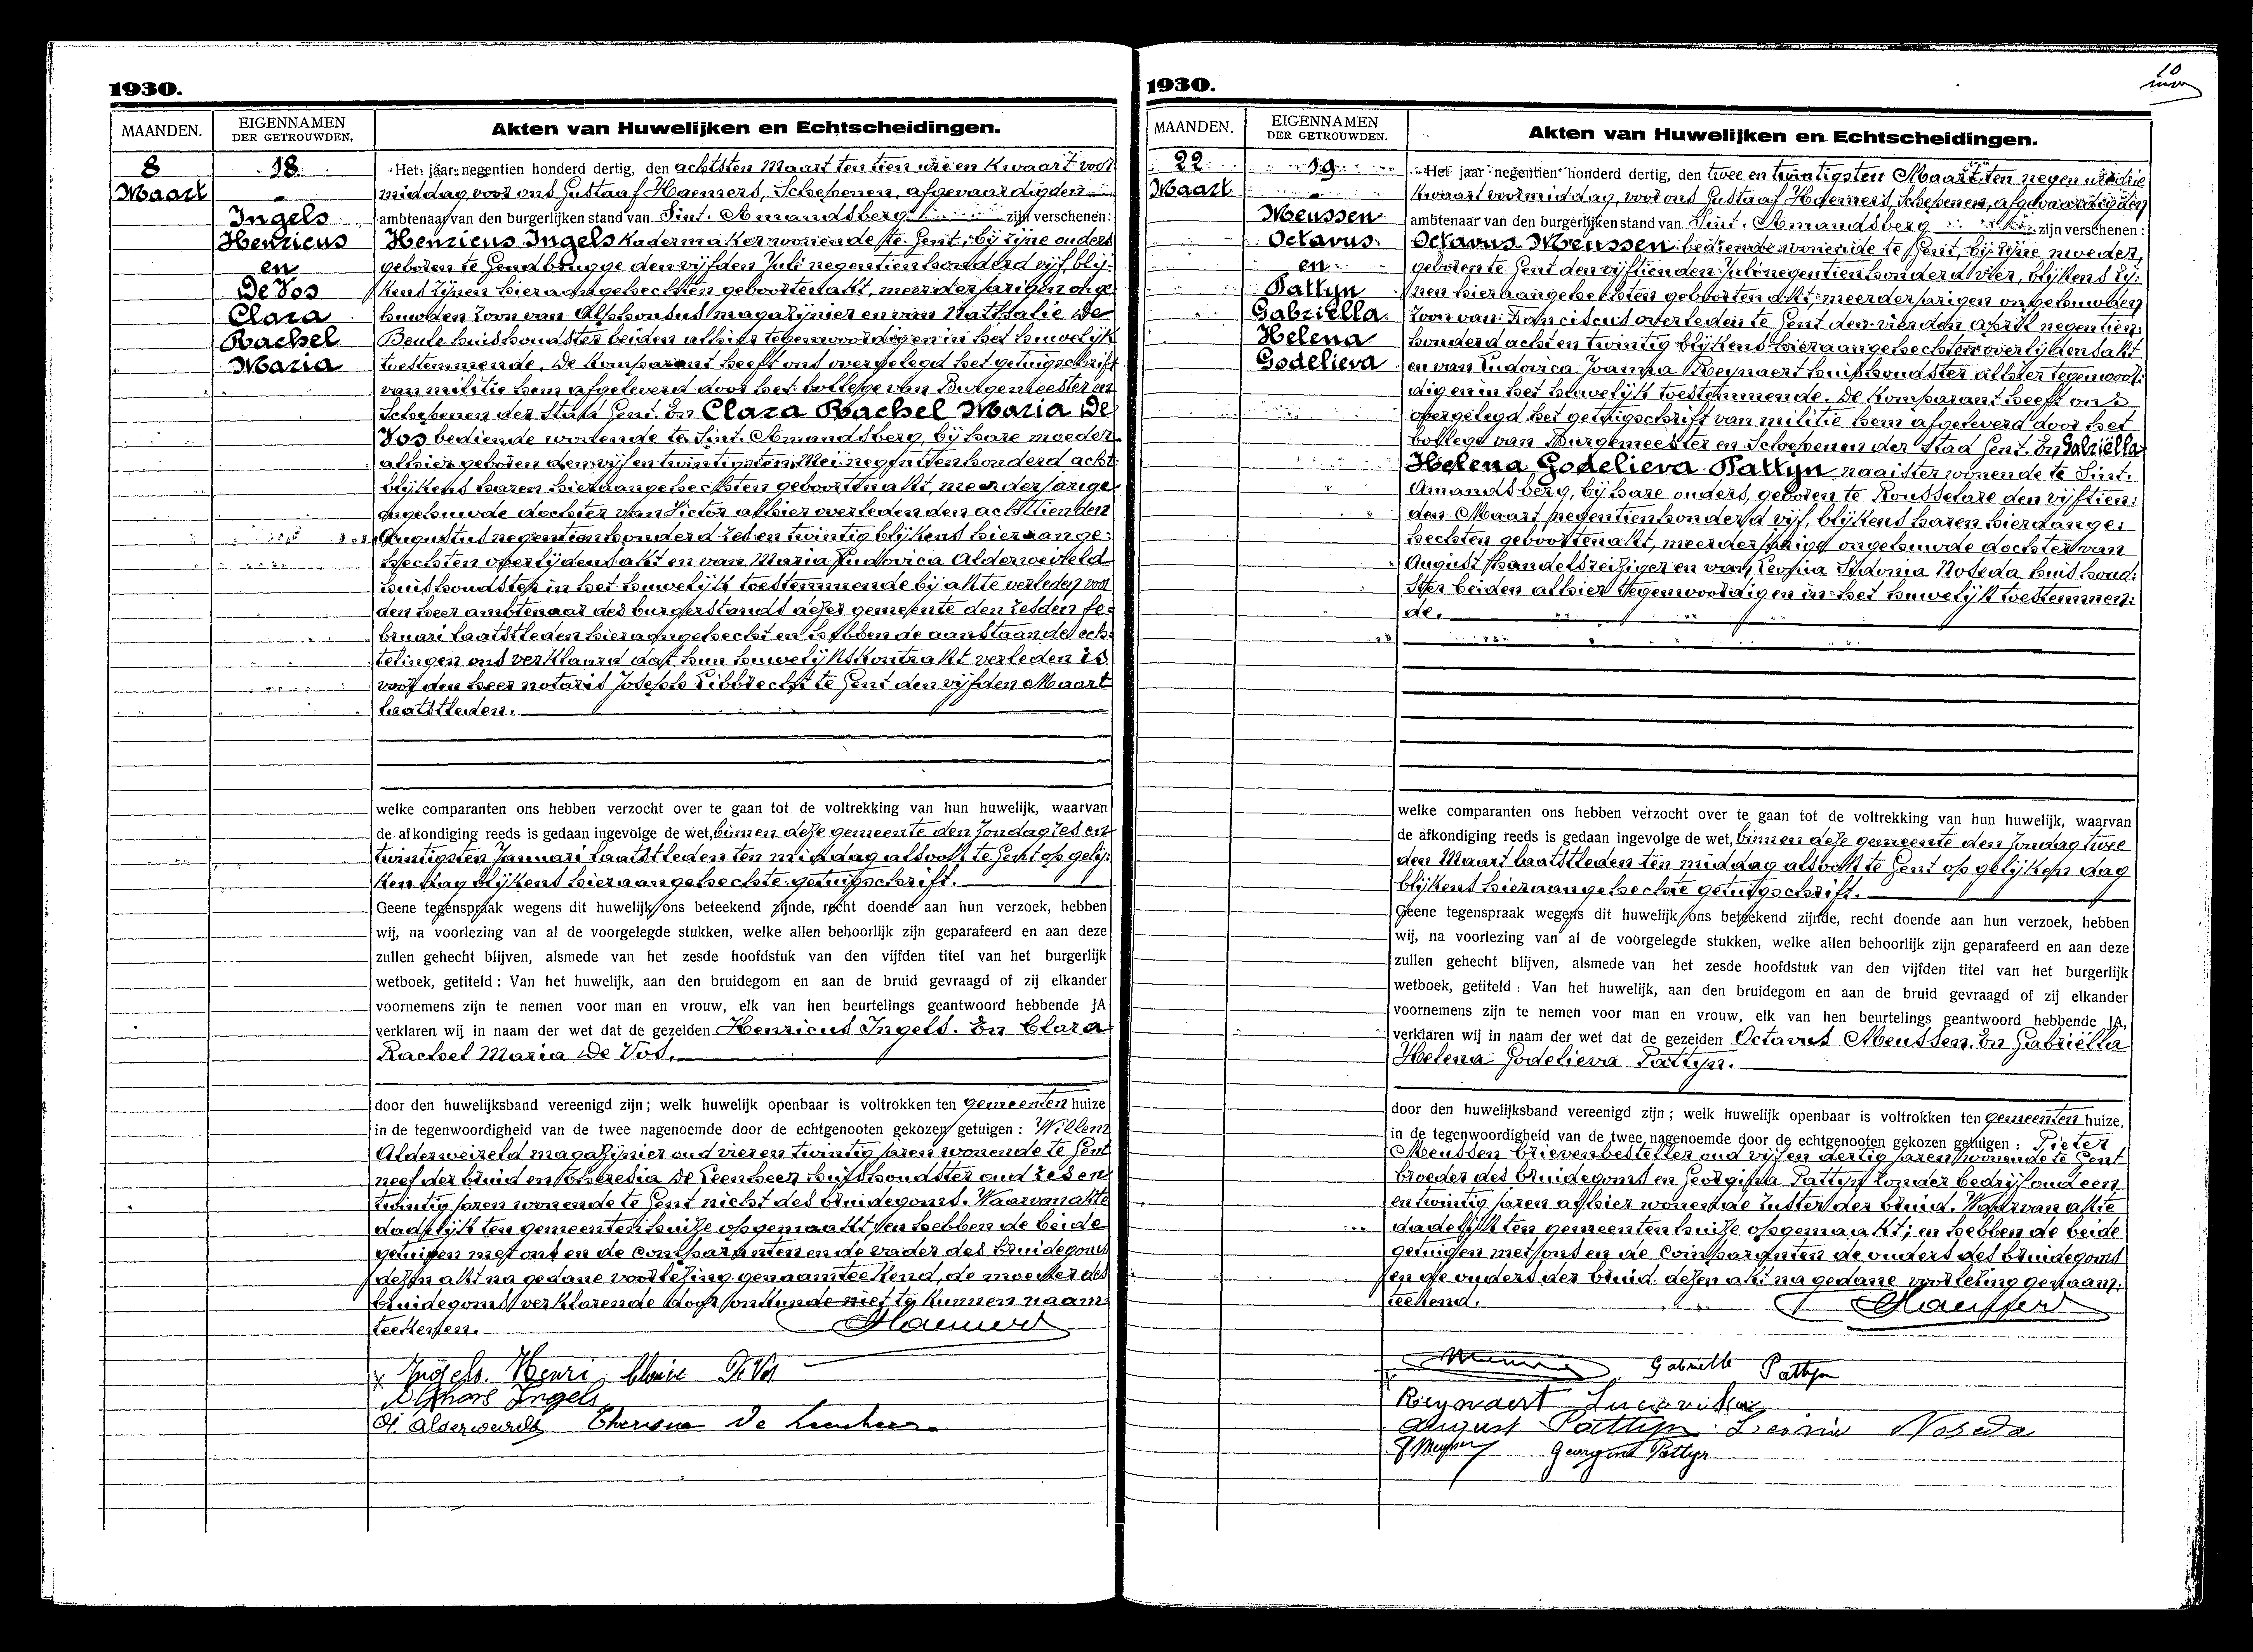 1930.
MAANDEN.
EIGENNAMEN
DER GETROUWDEN.
Akten van Huwelijken en Echtscheidingen.
8
Maart
18
Ingels
Henricus
en
De Vos
Clara
Rachel
Maria
Het jaar negentien honderd dertig, den achtsten Maart ten tien ure en kwaart voor
middag voor ons Gustaaf Haemers, Schepenen, afgevaardigden
ambtenaar van den burgerlijken stand van Sint. Amandsberg zijn verschenen:
Henricus Ingels kadermaker wonende te Gent, bij zijne ouders
geboren te Gendbrugge den vijfden Juli negentienhonderd vijf, blij-
kens zijnen hieraangehechten geboortenakt, meerderjarigen onge
huwden zoon van Alphonsus magazijnier en van Nathalie De
Beule huishoudster beiden alhier tegenwoordig en in het huwelijk
toestemmende. De komparant heeft ons overgelegd het getuigschrift
van militie hem afgeleverd door het kollege van Burgemeester en
Schepenen der Stad Gent. En Clara Rachel Maria De
Vos bediende wonende te Sint. Amandsberg, bij hare moeder
alhier geboren den vijfentwintigsten Mei negentienhonderd acht
blijkens haren hieraangehechten geboortenakt, meerderjarige
ongehuwde dochter van Victor alhier overleden den achttienden
Augustus negentienhonderd zes en twintig blijkens hieraange-
hechten overlijdensakt en van Maria Ludovica Alderweireld
huishoudster in het huwelijk toestemmende bij akte verleden voor
den heer ambtenaar des burgerstands dezer gemeente den zesden fe-
bruari laatstleden hieraangehecht en hebben de aanstaande ech-
telingen ons verklaard dat hun huwelijkskontrakt verleden is
voor den heer notaris Joseph Libbrecht te Gent den vijfden Maart
laatstleden.
welke comparanten ons hebben verzocht over te gaan tot de voltrekking van hun huwelijk, waarvan
de afkondiging reeds is gedaan ingevolge de wet, binnen deze gemeente den Zondag zes en
twintigsten Januari laatstleden ten middag alsook te Gent op gelij-
ken dag blijkens hieraangehechte getuigschrift.
Geene tegenspraak wegens dit huwelijk ons beteekend zijnde, recht doende aan hun verzoek, hebben
wij, na voorlezing van al de voorgelegde stukken, welke allen behoorlijk zijn geparafeerd en aan deze
zullen gehecht blijven, alsmede van het zesde hoofdstuk van den vijfden titel van het burgerlijk
wetboek, getiteld : Van het huwelijk, aan den bruidegom en aan de bruid gevraagd of zij elkander
voornemens zijn te nemen voor man en vrouw, elk van hen beurtelings geantwoord hebbende JA
verklaren wij in naam der wet dat de gezeiden Henricus Ingels. En Clara
Rachel Maria De Vos.
door den huwelijksband vereenigd zijn; welk huwelijk openbaar is voltrokken ten gemeenten huize
in de tegenwoordigheid van de twee nagenoemde door de echtgenooten gekozen getuigen : Willem
Alderweireld magazijnier oud vier en twintig jaren wonende te Gent
neef der bruid en Theresia De Leenheer huishoudster oud zes en
twintig jaren wonende te Gent nicht des bruidegoms. Waarvan akte
dadelijk ten gemeentenhuize opgemaakt, en hebben de beide
getuigen met ons en de comparanten en de vader des bruidegoms
dezen akt na gedane voorlezing genaamteekend, de moeder des
bruidegoms verklarende door onkunde niet te kunnen naam
teekenen.
Haemers
Ingels Henri Claire De Vos
Alphons Ingels
W Alderweireld Theresia De Leenheer
1930.
10
MAANDEN.
EIGENNAMEN
DER GETROUWDEN.
Akten van Huwelijken en Echtscheidingen.
22
Maart
19
Meussen
Octavus
en
Pattyn
Gabriëlla
Helena
Godelieva
Het jaar negentien honderd dertig, den twee en twintigsten Maart ten negen ure drie
kwaart voormiddag, voor ons Gustaaf Haemers, Schepenen, afgevaardigden
ambtenaar van den burgerlijken stand van Sint. Amandsberg zijn verschenen:
Octavus Meussen bediende wonende te Gent, bij zijne moeder,
geboren te Gent den vijftienden Juli negentienhonderd vier, blijkens zij-
nen hieraangehechten geboortenakt, meerderjarigen ongehuwden
zoon van Franciscus overleden te Gent den vierden April negentien-
honderd acht en twintig blijkens hieraangehechten overlijdensakt
en van Ludovica Joanna Reynaert huishoudster alhier tegenwoor-
dig en in het huwelijk toestemmende. De komparant heeft ons
overgelegd het getuigschrift van militie hem afgeleverd door het
kollege van Burgemeester en Schepenen der Stad Gent. En Gabriëlla
Helena Godelieva Pattyn naaister wonende te Sint.
Amandsberg, bij hare ouders, geboren te Rousselare den vijftien-
den Maart negentienhonderd vijf, blijkens haren hieraange-
hechten geboortenakt, meerderjarige ongehuwde dochter van
August handelsreiziger en van Leonia Sidonia Noseda huishoud-
ster beiden alhier tegenwoordig en in het huwelijk toestemmen-
de.
welke comparanten ons hebben verzocht over te gaan tot de voltrekking van hun huwelijk, waarvan
de afkondiging reeds is gedaan ingevolge de wet, binnen deze gemeente den Zondag twee
den Maart laatstleden ten middag alsook te Gent op gelijken dag
blijkens hieraangehechte getuigschrift.
Geene tegenspraak wegens dit huwelijk ons beteekend zijnde, recht doende aan hun verzoek, hebben
wij, na voorlezing van al de voorgelegde stukken, welke allen behoorlijk zijn geparafeerd en aan deze
zullen gehecht blijven, alsmede van het zesde hoofdstuk van den vijfden titel van het burgerlijk
wetboek, getiteld : Van het huwelijk, aan den bruidegom en aan de bruid gevraagd of zij elkander
voornemens zijn te nemen voor man en vrouw, elk van hen beurtelings geantwoord hebbende JA,
verklaren wij in naam der wet dat de gezeiden Octavus Meussen. En Gabriëlla
Helena Godelieva Pattyn.
door den huwelijksband vereenigd zijn; welk huwelijk openbaar is voltrokken ten gemeenten huize,
in de tegenwoordigheid van de twee nagenoemde door de echtgenooten gekozen getuigen : Pieter
Meussen brievenbesteller oud vijf en dertig jaren wonende te Gent
broeder des bruidegoms en Georgina Pattyn zonder bedrijf oud een
en twintig jaren alhier wonende zuster der bruid. Waarvan akte
dadelijk ten gemeentenhuize opgemaakt; en hebben de beide
getuigen met ons en de comparanten de ouders des bruidegoms
en de ouders der bruid dezen akt na gedane voorlezing genaam-
teekend.
Haemers
Gabrielle Pattyn
Reynaert Ludovika
August Pattyn Leonie Noseda
Georgina Pattyn